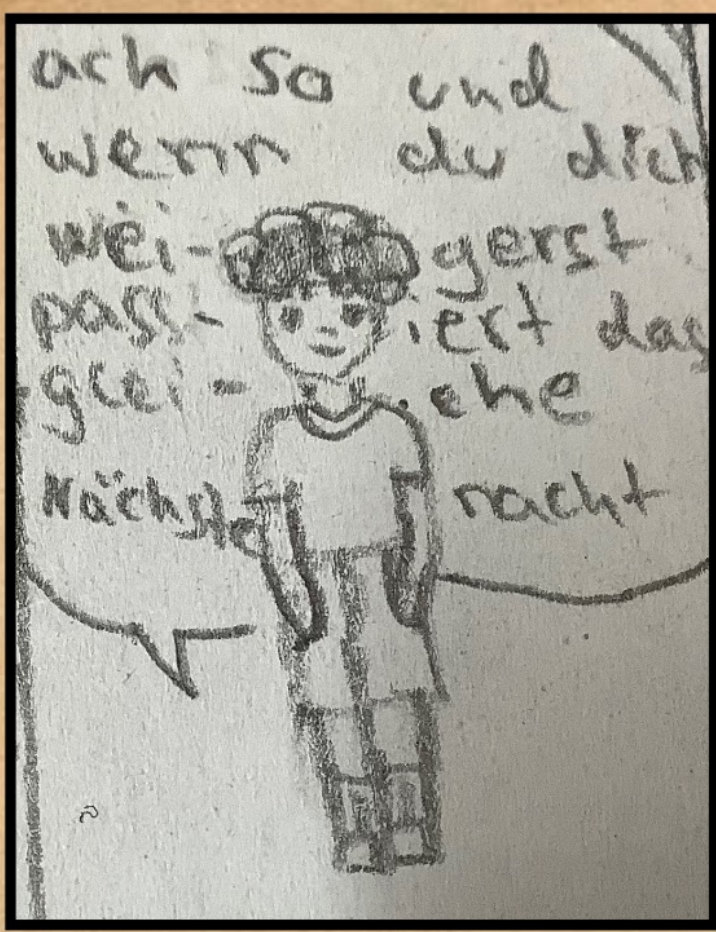 ach so und
wenn du dich
wei- gerst
pass- iert das
glei- che
Nächste nacht